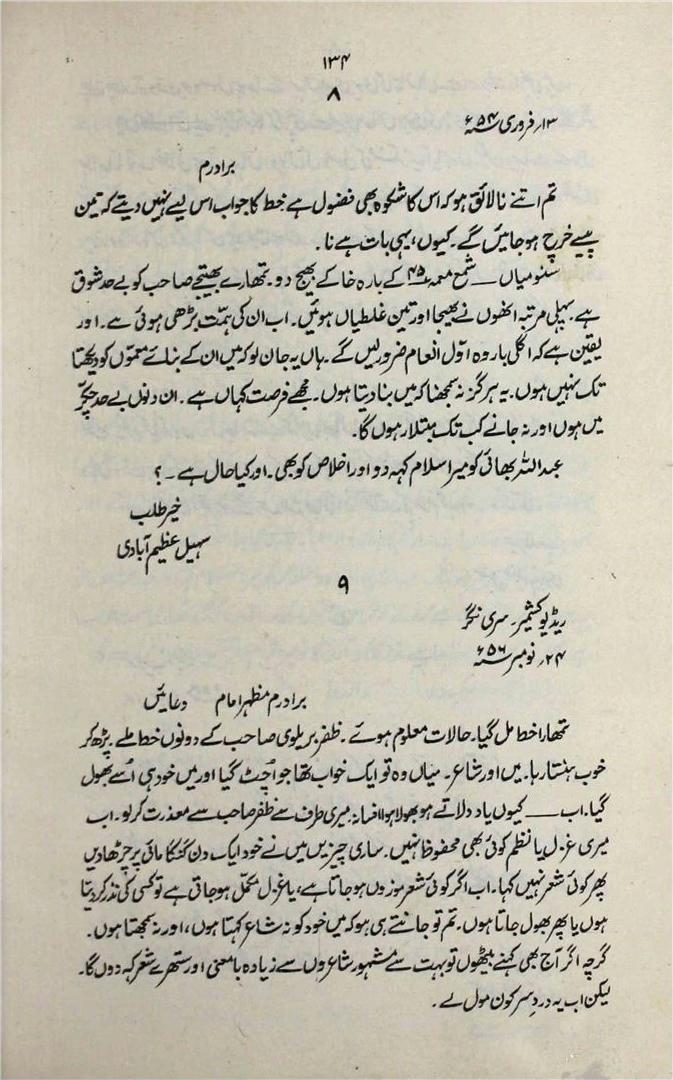 ۱۳۴
۸
۱۳؍ فروری ۵۴ء
برادرم
تم اتنے نالائق ہو کہ اس کا شکوہ بھی فضول ہے خط کا جواب اس لیے نہیں دیتے کہ تین
پیسے خرچ ہو جائیں گے۔ کیوں، یہی بات ہے نا۔
سنو میاں ـــ شمع معمہ ۴۵ کے بارہ خاکے بھیج دو۔ تمھارے بھتیجے صاحب کو بے حد شوق
ہے۔ پہلی مرتبہ انھوں نے بھیجا اور تین غلطیاں ہوئیں۔ اب ان کی ہمّت بڑھی ہوئی ہے۔ اور
یقین ہے کہ اگلی بار وہ اوّل انعام ضرور لیں گے۔ ہاں یہ جان لو کہ میں ان کے بنائے معموں کو دیکھتا
تک نہیں ہوں۔ یہ ہرگز نہ سمجھنا کہ میں بنا دیتا ہوں۔ مجھے فرصت کہاں ہے۔ ان دنوں بے حد چکّر
میں ہوں اور نہ جانے کب تک مبتلا رہوں گا۔
عبداللہ بھائی کو میرا سلام کہہ دو اور اخلاص کو بھی۔ اور کیا حال ہے۔؟
خیر طلب
سہیل عظیم آبادی
۹
ریڈیو کشمیر۔ سری نگر
۲۴؍ نومبر ۵۶ء
برادرم مظہر امام دعائیں
تمھارا خط مل گیا۔ حالات معلوم ہوئے۔ ظفر بریلوی صاحب کے دونوں خط ملے۔ پڑھ کر
خوب ہنستا رہا۔ میں اور شاعر۔ میاں وہ تو ایک خواب تھا جو اُچٹ گیا اور میں خود ہی اُسے بھول
گیا۔ اب ـــ کیوں یاد دلاتے ہو بھولا ہوا افسانہ۔ میری طرف سے ظفر صاحب سے معذرت کر لو۔ اب
میری غزل یا نظم کوئی بھی محفوظ نہیں۔ ساری چیزیں میں نے خود ایک دن گنگا مائی پر چڑھا دیں
پھر کوئی شعر نہیں کہا۔ اب اگر کوئی شعر موزوں ہو جاتا ہے، یا غزل مکمّل ہو جاتی ہے تو کسی کی نذر کر دیتا
ہوں یا پھر بھول جاتا ہوں۔ تم تو جانتے ہی ہو کہ میں خود کو نہ شاعر کہتا ہوں، اور نہ سمجھتا ہوں۔
گرچہ اگر آج بھی کہنے بیٹھوں تو بہت سے مشہور شاعروں سے زیادہ بامعنی اور ستھرے شعر کہہ دوں گا۔
لیکن اب یہ دردِ سر کون مول لے۔